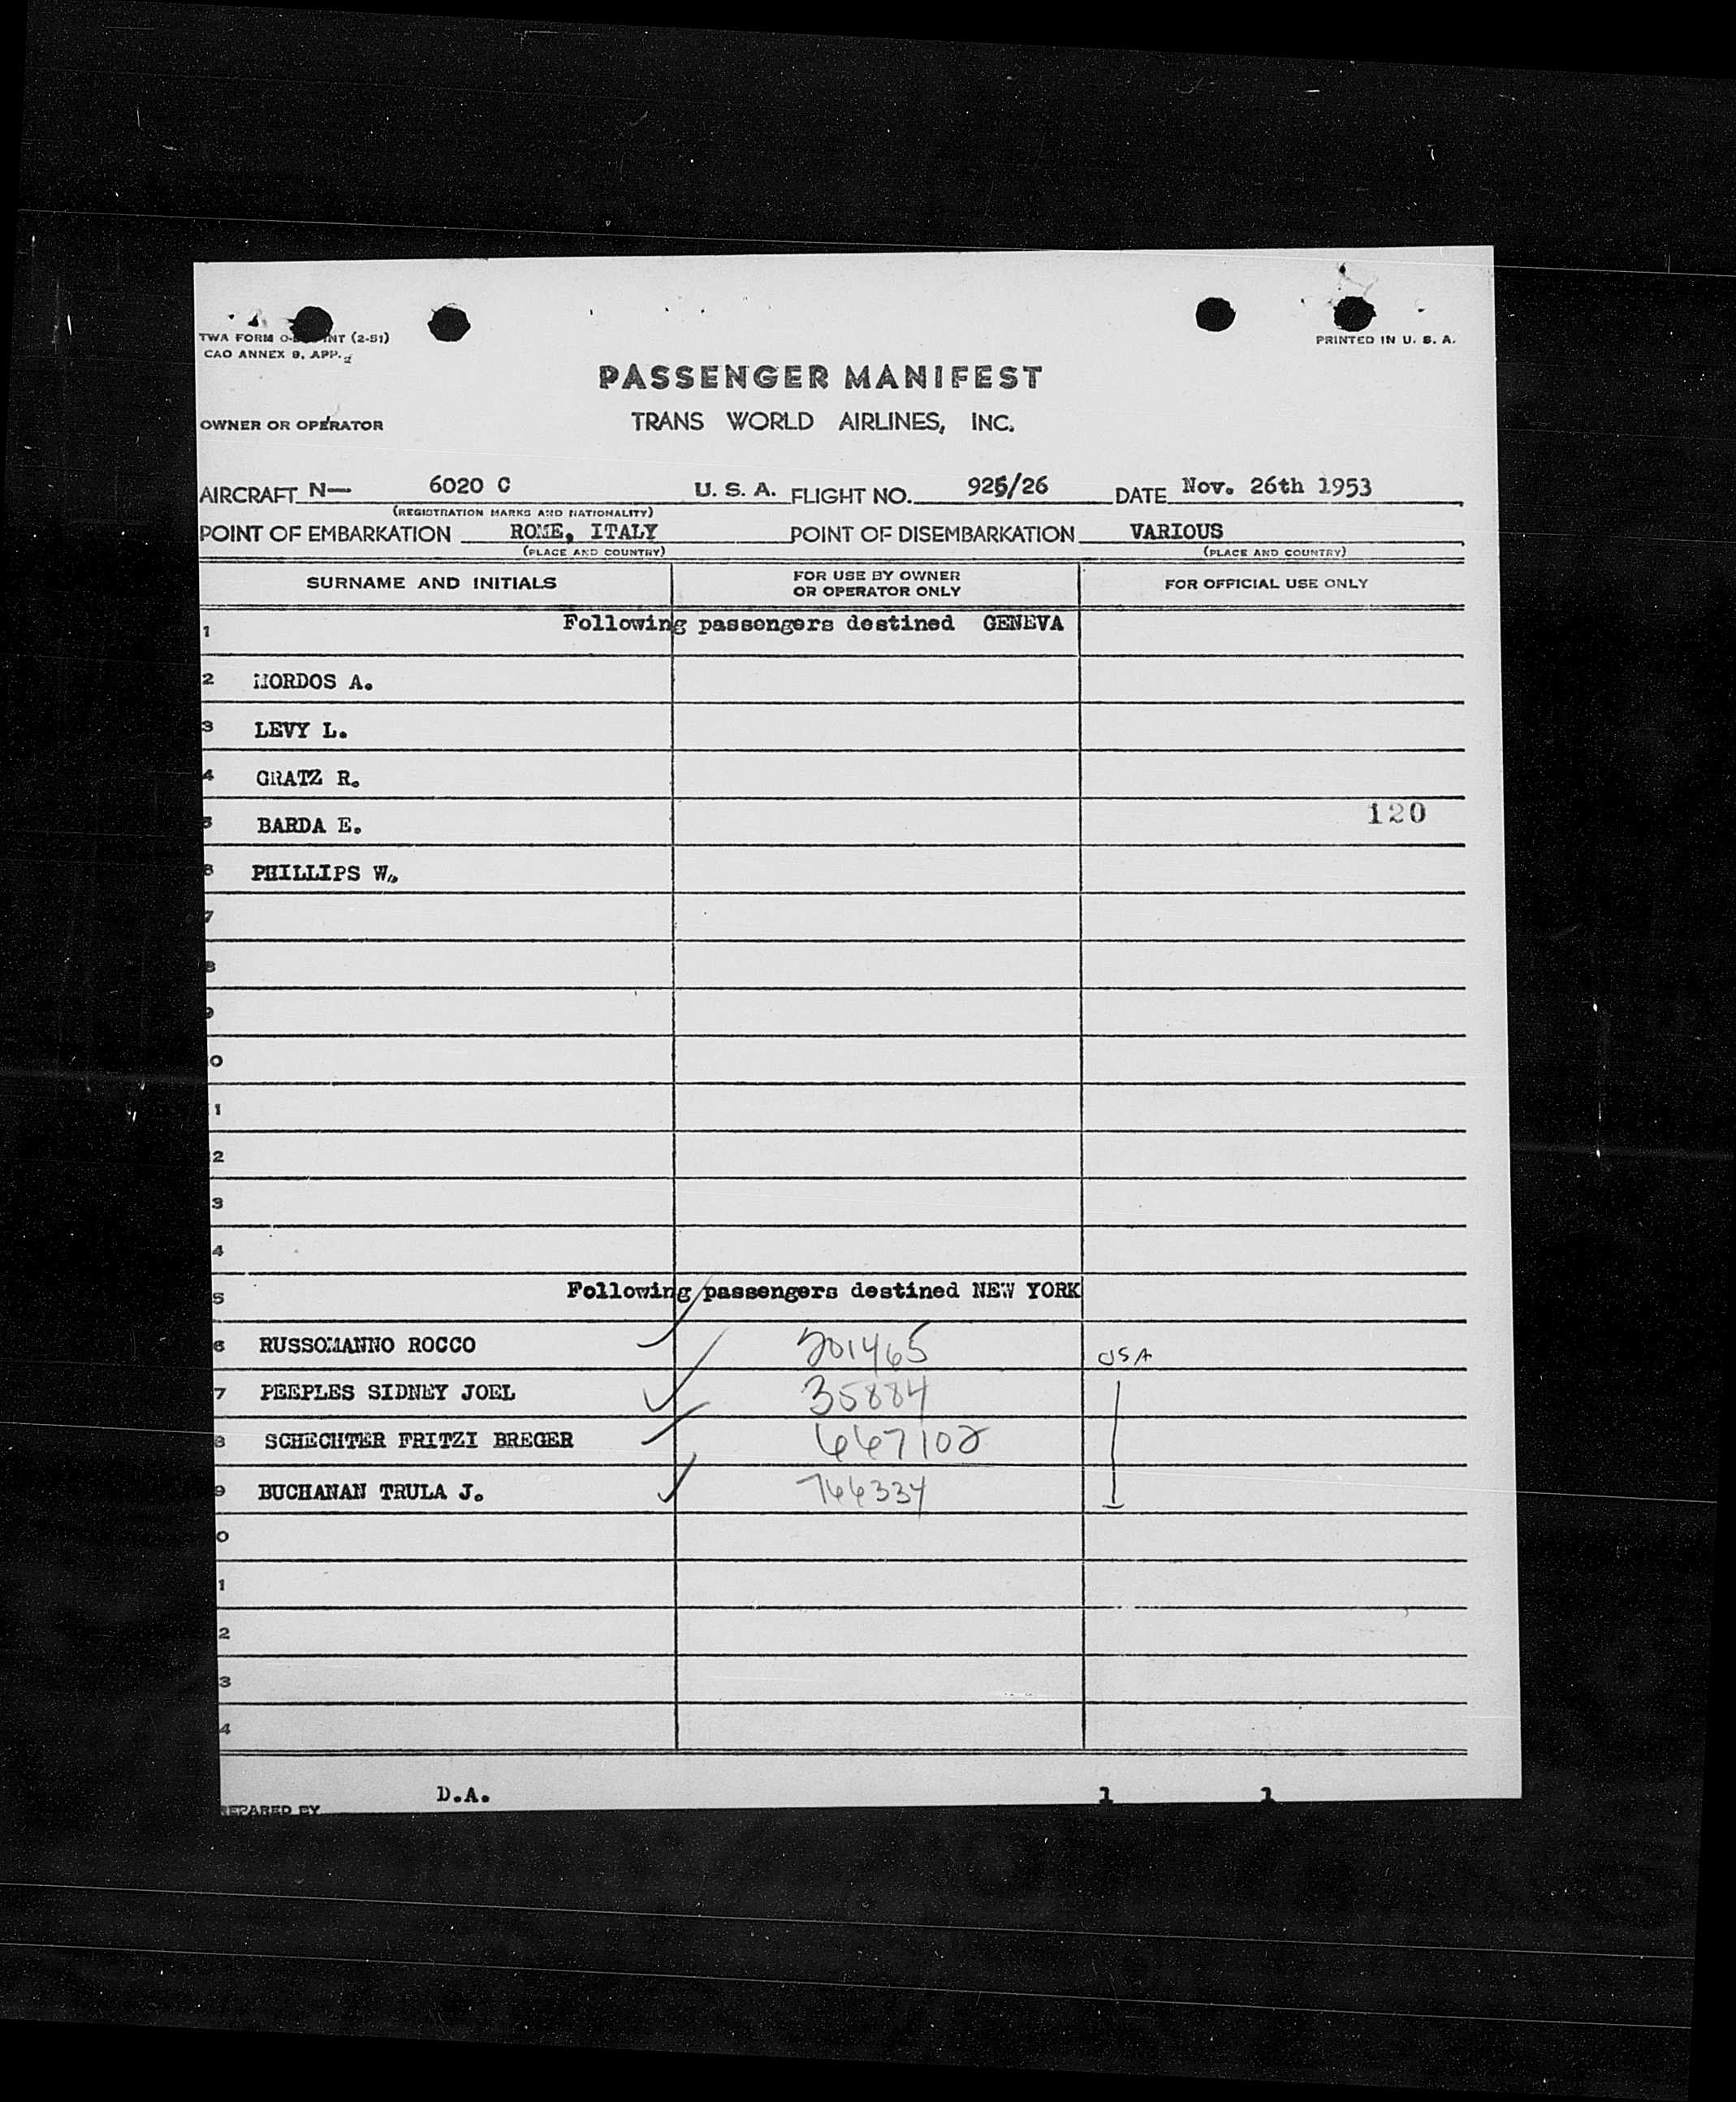 TWA FORM O- INT (2-51)
PRINTED IN U. S. A.
CAO ANNEX 9, APP. 2
PASSENGER MANIFEST
OWNER OR OPERATOR TRANS WORLD AIRLINES, INC.
AIRCRAFT N— 6020 C U. S. A. FLIGHT NO. 925/26 DATE Nov. 26th 1953
(REGISTRATION MARKS AND NATIONALITY)
POINT OF EMBARKATION ROME, ITALY POINT OF DISEMBARKATION VARIOUS
(PLACE AND COUNTRY) (PLACE AND COUNTRY)
SURNAME AND INITIALS FOR USE BY OWNER OR OPERATOR ONLY FOR OFFICIAL USE ONLY
1 Following passengers destined GENEVA
2 MORDOS A.
3 LEVY L.
4 GRATZ R.
5 BARDA E. 120
6 PHILLIPS W.
7
8
9
0
1
2
3
4
5 Following passengers destined NEW YORK
6 RUSSOMANNO ROCCO 201465 USA
7 PEEPLES SIDNEY JOEL 35884
8 SCHECHTER FRITZI BREGER 667102
9 BUCHANAN TRULA J. 766334
0
1
2
3
4
D.A. 1 1
REPARED BY